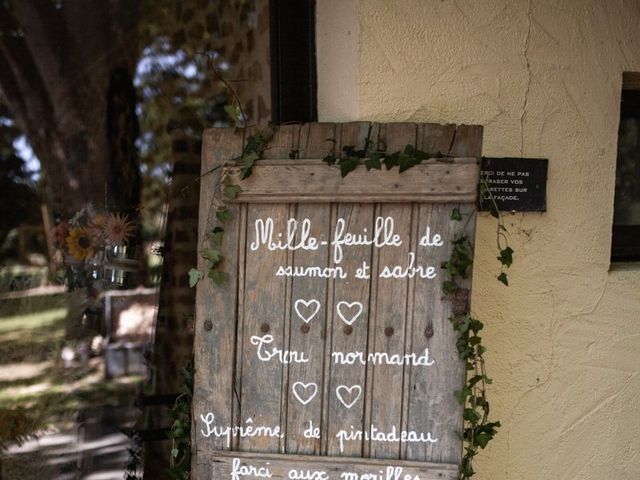 Mille-feuille de
saumon et sabre
Trou normand
Suprême de pintadeau
farci aux morilles
RCI DE NE PAS
RASER VOS
ARETTES SUR
LA FAÇADE.